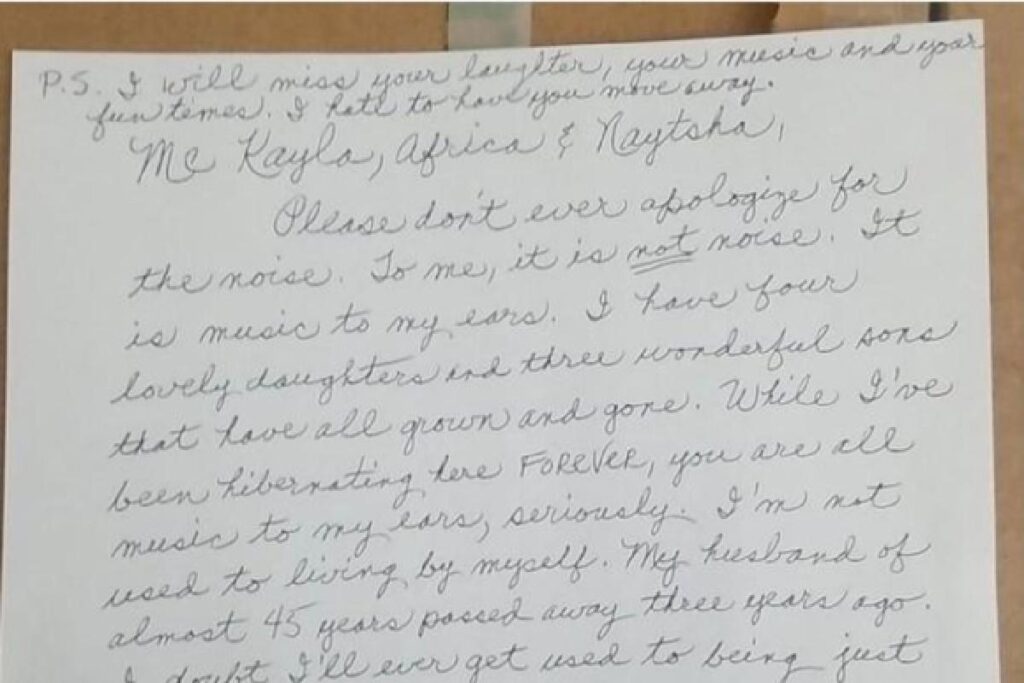 P.S. I will miss your laughter, your music and your
fun times. I hate to have you move away.
Mc Kayla, Africa & Naytsha,
Please don't ever apologize for
the noise. To me, it is not noise. It
is music to my ears. I have four
lovely daughters and three wonderful sons
that have all grown and gone. While I've
been hibernating here FOREVER, you are all
music to my ears, seriously. I'm not
used to living by myself. My husband of
almost 45 years passed away three years ago.
I doubt I'll ever get used to being just